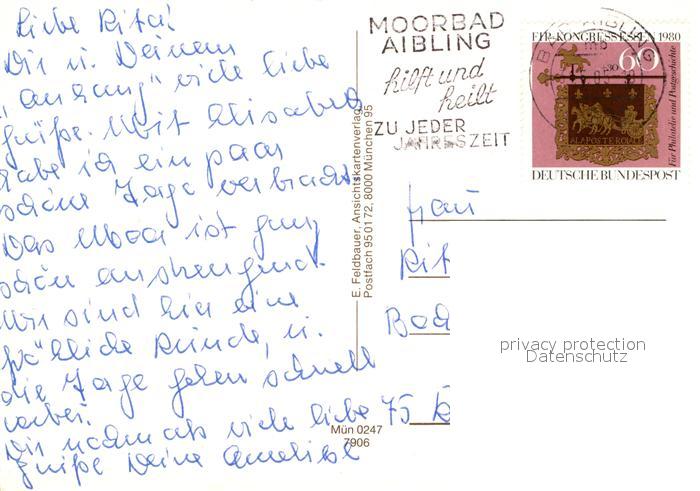 Liebe Rita!
Dir u. Deinem
"Anhang" viele liebe
Grüße. Mit Elisabeth
habe ich ein paar
schöne Tage verbracht.
Das Moor ist ganz
schön anstrengend.
Wir sind hier eine
fröhliche Runde, u.
die Tage gehen schnell
vorbei.
Dir nochmals viele liebe
Grüße Deine Anneliese
MOORBAD
AIBLING
hilft und
heilt
ZU JEDER
JAHRESZEIT
BAD AIBLING
FIP-KONGRESS ESSEN 1980
60+30
Für Philatelie und Postgeschichte
ALAPOSTE ROYALE
DEUTSCHE BUNDESPOST
E. Feldbauer, Ansichtskartenverlag
Postfach 95 01 72, 8000 München 95
Mün 0247
7906
Frau
Rit
Bad
75
privacy protection
Datenschutz